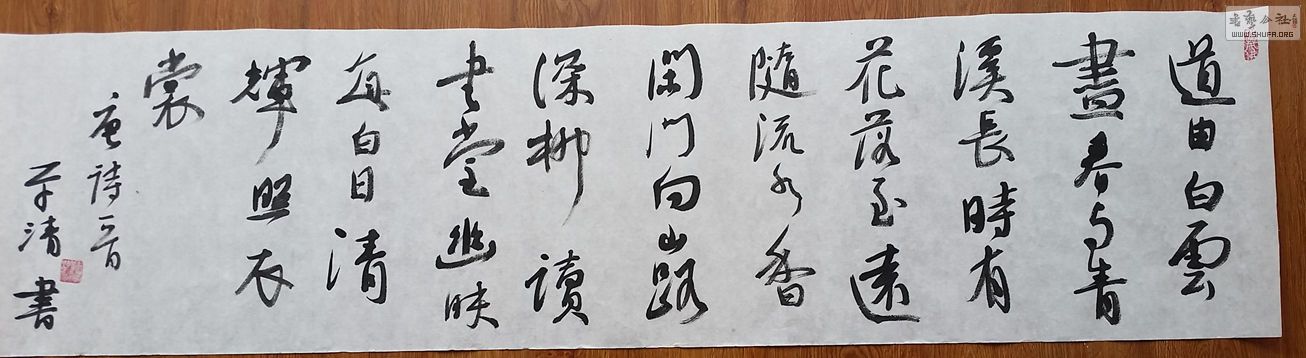 道由白雲
盡春与青
溪長時有
花落至遠
隨流水香
閑門向山路
深柳讀
書堂幽映
每白日清
輝照衣
裳
唐詩一首
清書
書藝公社
WWW.SHUFA.ORG